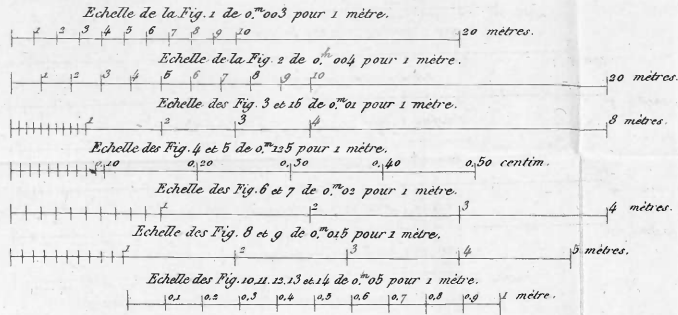 Echelle de la Fig. 1 de 0,m003 pour 1 mètre.
1 2 3 4 5 6 7 8 9 10 20 mètres.
Echelle de la Fig. 2 de 0,m004 pour 1 mètre.
1 2 3 4 5 6 7 8 9 10 20 mètres.
Echelle des Fig. 3 et 15 de 0,m01 pour 1 mètre.
1 2 3 4 8 mètres.
Echelle des Fig. 4 et 5 de 0,m125 pour 1 mètre.
0,10 0,20 0,30 0,40 0,50 centim.
Echelle des Fig. 6 et 7 de 0,m02 pour 1 mètre.
1 2 3 4 mètres.
Echelle des Fig. 8 et 9 de 0,m015 pour 1 mètre.
1 2 3 4 5 mètres.
Echelle des Fig. 10, 11, 12, 13 et 14 de 0,m05 pour 1 mètre.
0,1 0,2 0,3 0,4 0,5 0,6 0,7 0,8 0,9 1 mètre.